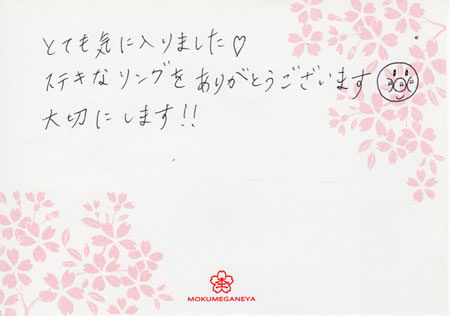 とても気に入りました♡
ステキなリングをありがとうございます
大切にします!!
MOKUMEGANEYA